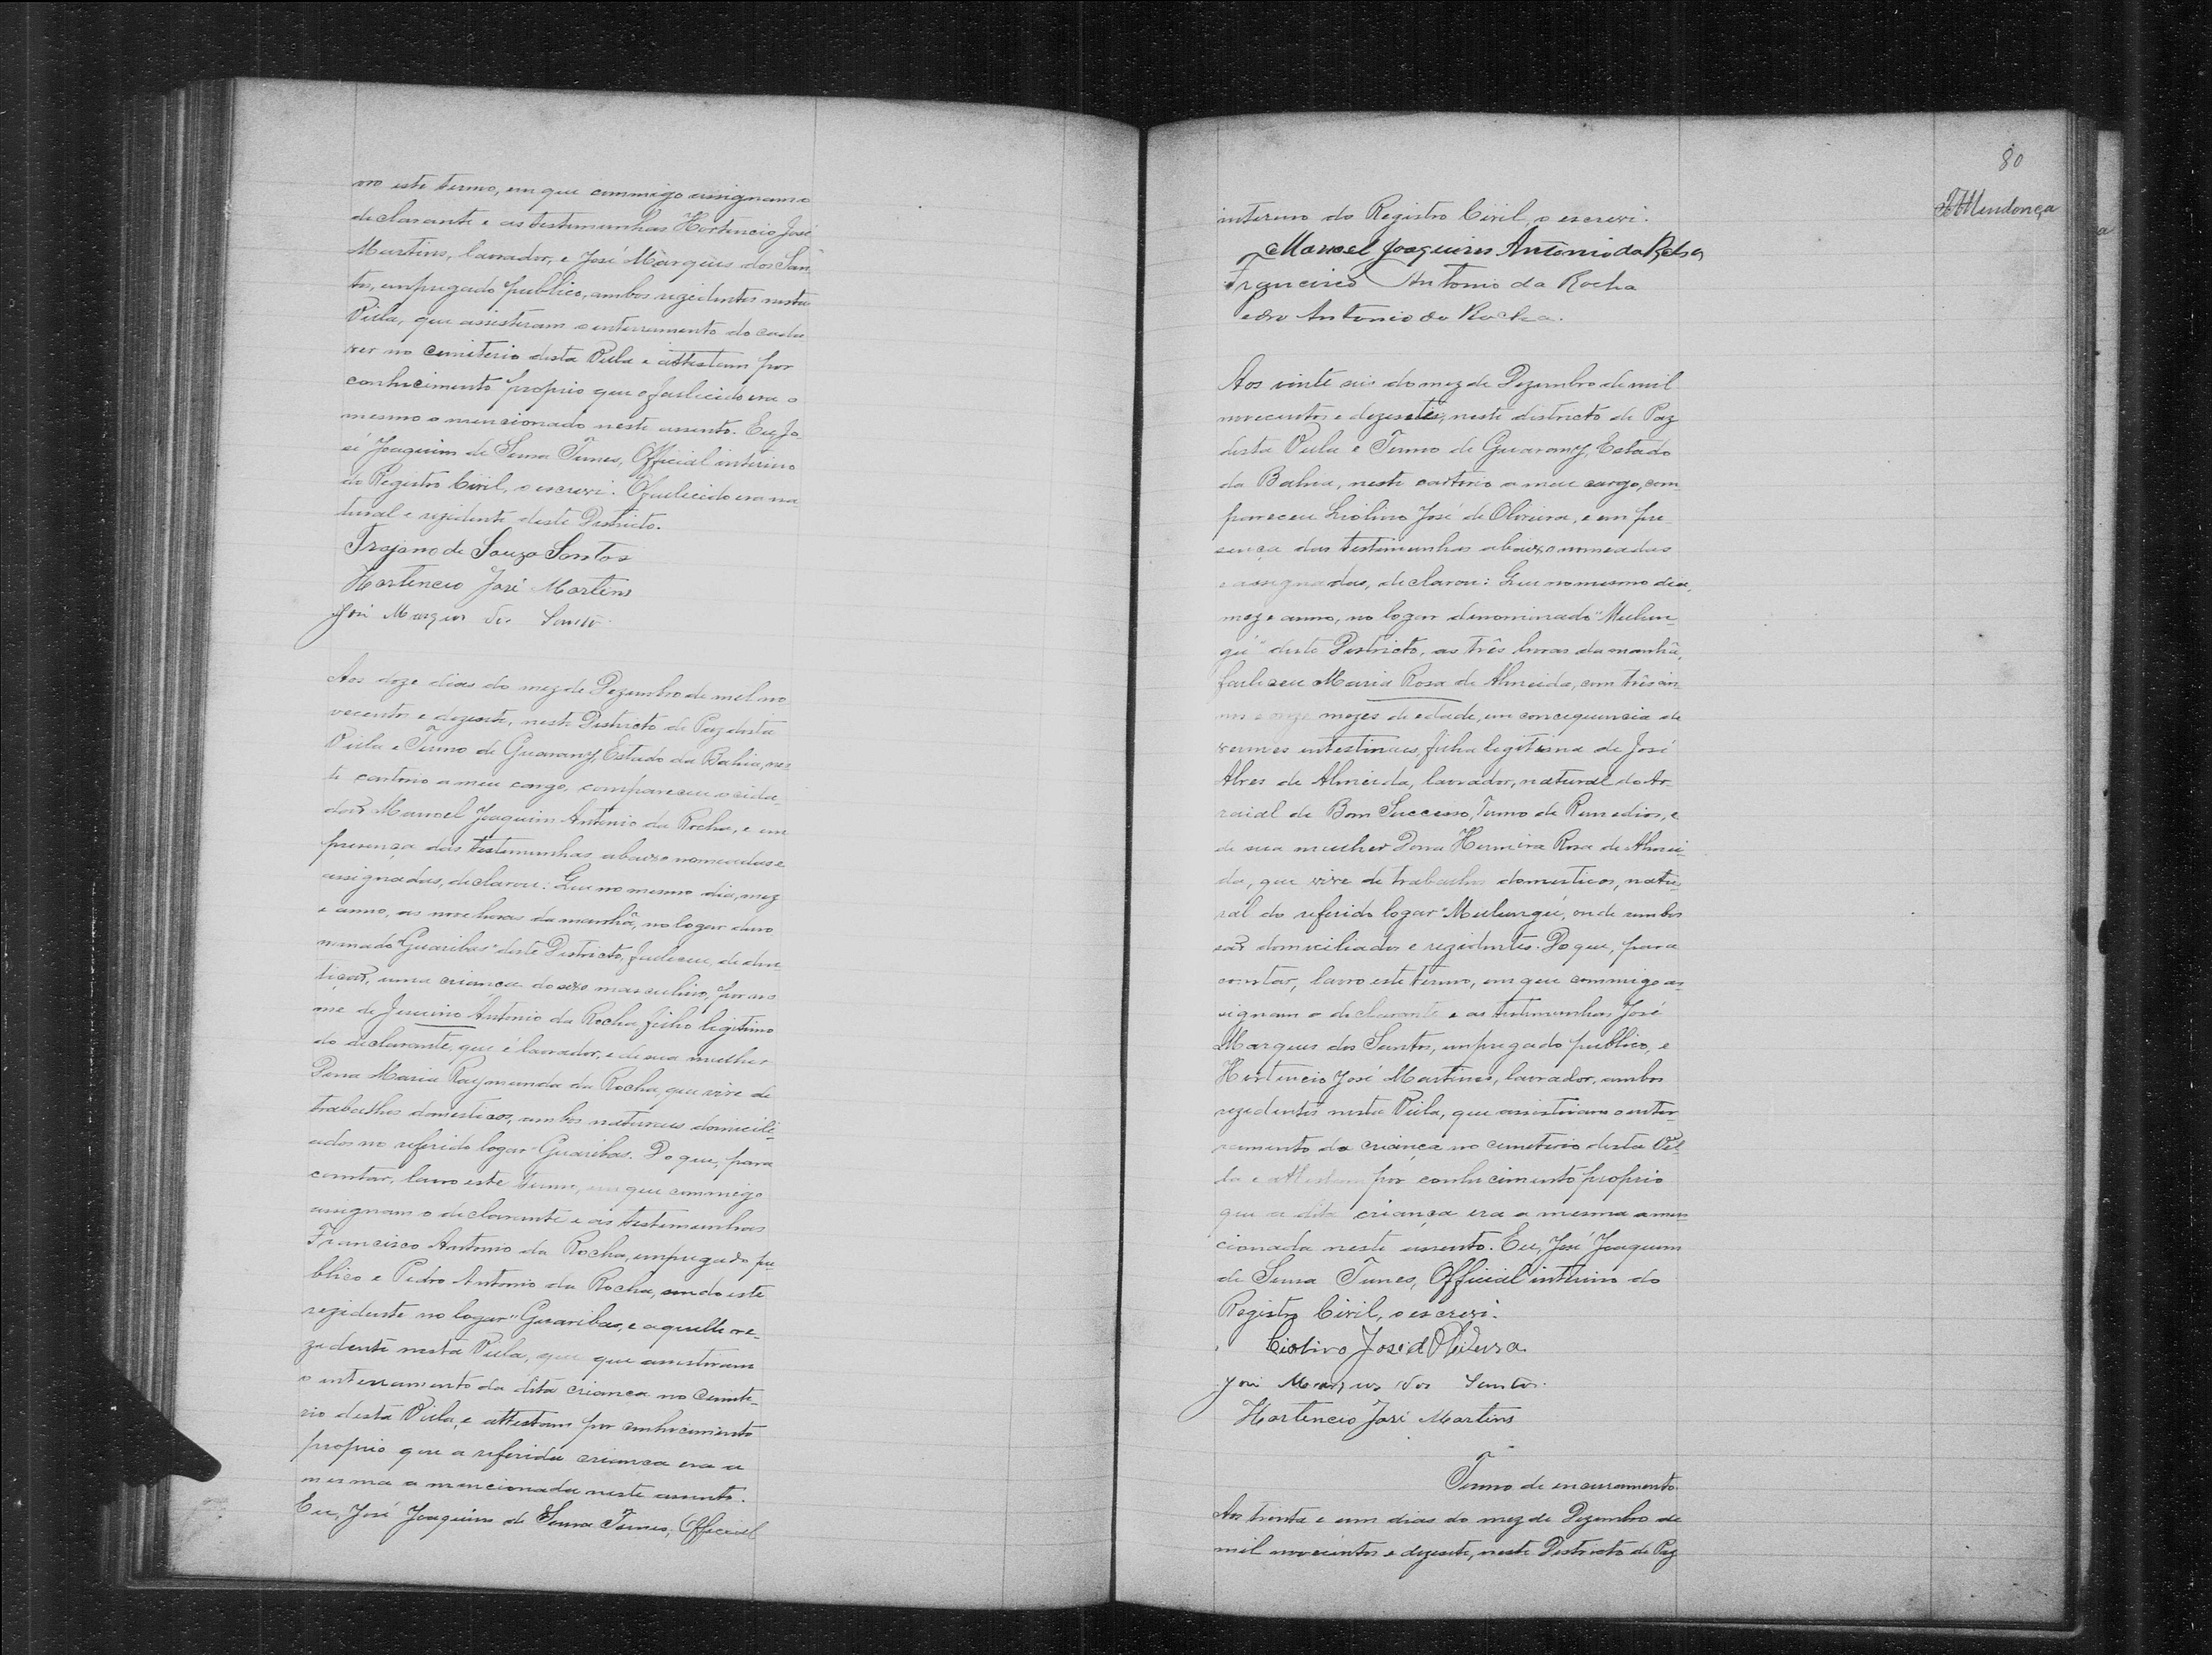 vro este termo, em que commigo assignam o
declarante e as testemunhas Hortencio José
Martins, lavrador, e José Marques dos San-
tos, empregado publico, ambos rezidentes nesta
Villa, que assistiram o enterramento do cada
ver no cemiterio desta Villa e attestam por
conhecimento proprio que o fallecido era o
mesmo o mencionado neste assento. Eu, Jo-
sé Joaquim de Tunes, Official interino
do Registro Civil, o escrevi. O fallecido era na-
tural e rezidente deste Districto.
Trajano de Souza Santos
Hortencio José Martins
José Marques dos Santos
Aos doze dias do mez de Dezembro de mil no
vecentos e dezesete, neste Districto de Paz desta
Villa e Termo de Guarany, Estado da Bahia, nes-
te cartorio a meu cargo, compareceu o cida-
dão Manoel Joaquim Antonio da Rocha, e em
presença das testemunhas abaixo nomeadas e
assignadas, declarou: Que no mesmo dia, mez
e anno, as nove horas da manhã, no logar deno
minado "Guaribas" deste Districto, falleceu, de den-
tição, uma criança do sexo masculino, por no
me de Jesuino Antonio da Rocha, filho legitimo
do declarante, que é lavrador, e de sua mulher
Dona Maria Raymunda da Rocha, que vive de
trabalhos domesticos, ambos naturaes domicili-
ados no referido logar "Guaribas. Do que, para
constar, lavro este termo, em que commigo
assignam o declarante e as testemunhas
Francisco Antonio da Rocha, empregado pu-
blico e Pedro Antonio da Rocha, sendo este
rezidente no logar "Guaribas, e aquelle re-
zidente nesta Villa, que que assistiram
o enterramento da dita criança no Cemite-
rio desta Villa, e attestam por conhecimento
proprio que a referida criança era a
mesma a mencionada neste assento.
Eu, José Joaquim de Tunes, Official
80
Mendonça
interino do Registro Civil, o escrevi.
Manoel Joaquim Antonio da Rocha
Francisco Antonio da Rocha
Pedro Antonio da Rocha.
Aos vinte seis do mez de Dezembro de mil
novecentos e dezesete, neste districto de Paz
desta Villa e Termo de Guarany, Estado
da Bahia, neste cartorio a meu cargo, com-
pareceu Liolino José de Oliveira, e em pre-
sença das testemunhas abaixo nomeadas
e assignadas, declarou: Que no mesmo dia,
mez e anno, no logar denominado "Mulun-
gú" deste Districto, as três horas da manhã,
falleceu Maria Rosa de Almeida, com três an-
nos e onze mezes de edade, em consequencia de
vermes intestinaes, filha legitima de José
Alves de Almeida, lavrador, natural do Ar-
raial de Bom Successo, Termo de Remedios, e
de sua mulher Dona Hermira Rosa de Almei-
da, que vive de trabalhos domesticos, natu-
ral do referido logar "Mulungú, onde ambos
são domiciliados e rezidentes. Do que, para
constar, lavro este termo, em que commigo as-
signam o declarante e as testemunhas José
Marques dos Santos, empregado publico, e
Hortencio José Martins, lavrador, ambos
rezidentes nesta Villa, que assistiram o enter-
ramento da criança no cemiterio desta Vil-
la e attestam por conhecimento proprio
que a dita criança era a mesma a men-
cionada neste assento. Eu, José Joaquim
de Tunes, Official interino do
Registro Civil, o escrevi.
Liolino José d Oliveira
José Marques dos Santos.
Hortencio José Martins
Termo de encerramento.
Aos trinta e um dias do mez de Dezembro de
mil novecentos e dezesete, neste Districto de Paz